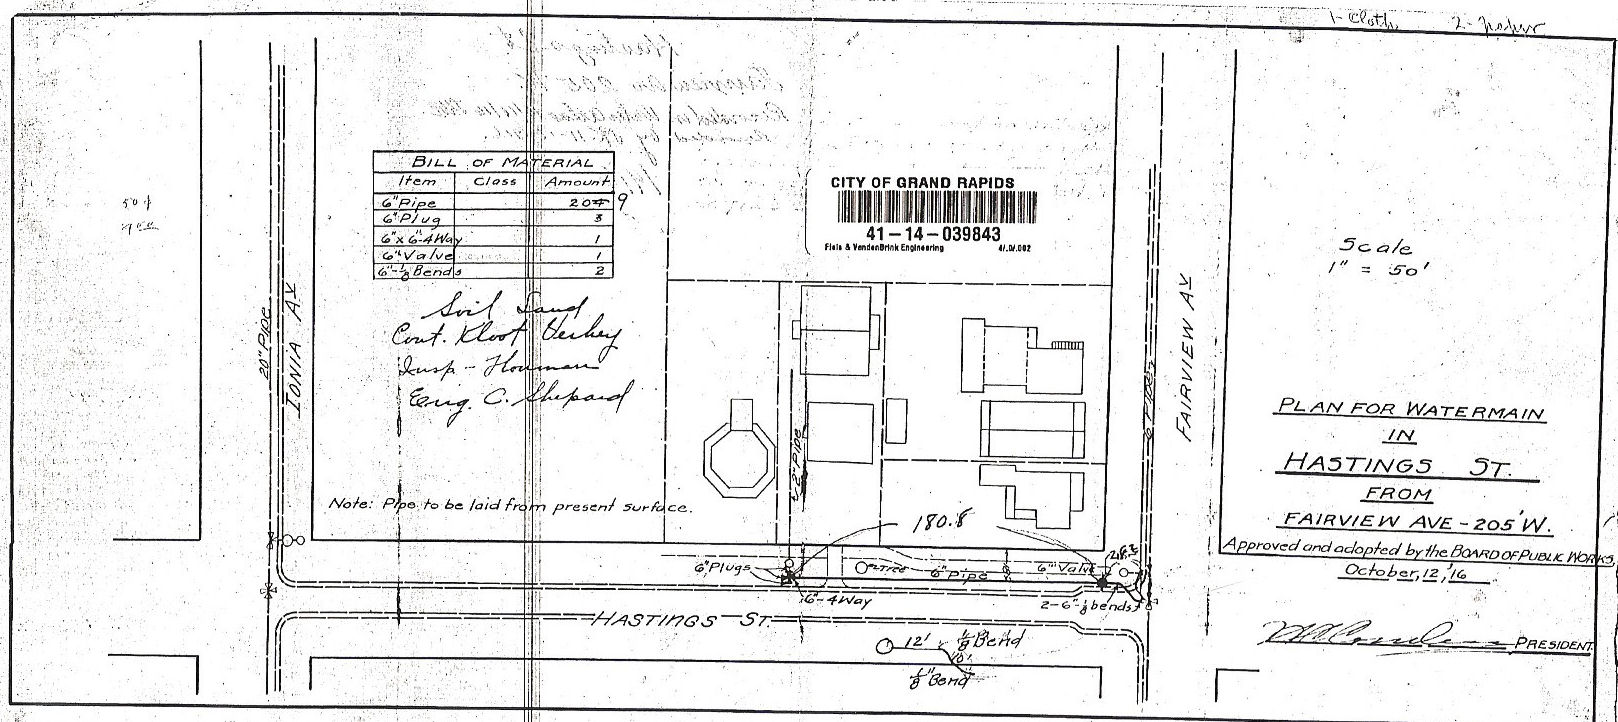 1-Cloth 2-paper
BILL OF MATERIAL
Item Class Amount
6" Pipe 204 9
6" Plug 3
6"x6"-4Way 1
6" Valve 1
6"-1/8 Bends 2
Soil Sand
Cont. Kloot Verhey
Insp - Houman
Eng. C. Shepard
Note: Pipe to be laid from present surface.
CITY OF GRAND RAPIDS
41-14-039843
Fleis & VandenBrink Engineering
20" PIPE
IONIA AV
2" PIPE
6" PIPE
FAIRVIEW AV
Scale
1" = 50'
PLAN FOR WATERMAIN
IN
HASTINGS ST.
FROM
FAIRVIEW AVE-205'W.
Approved and adopted by the BOARD OF PUBLIC WORKS,
October, 12, '16
PRESIDENT.
180.8
6" Plugs
Tree
6" Pipe
6" Valve
6"-4Way
2-6"-1/8 bends
HASTINGS ST.
12' 1/8 Bend
10'
1/8" Bend